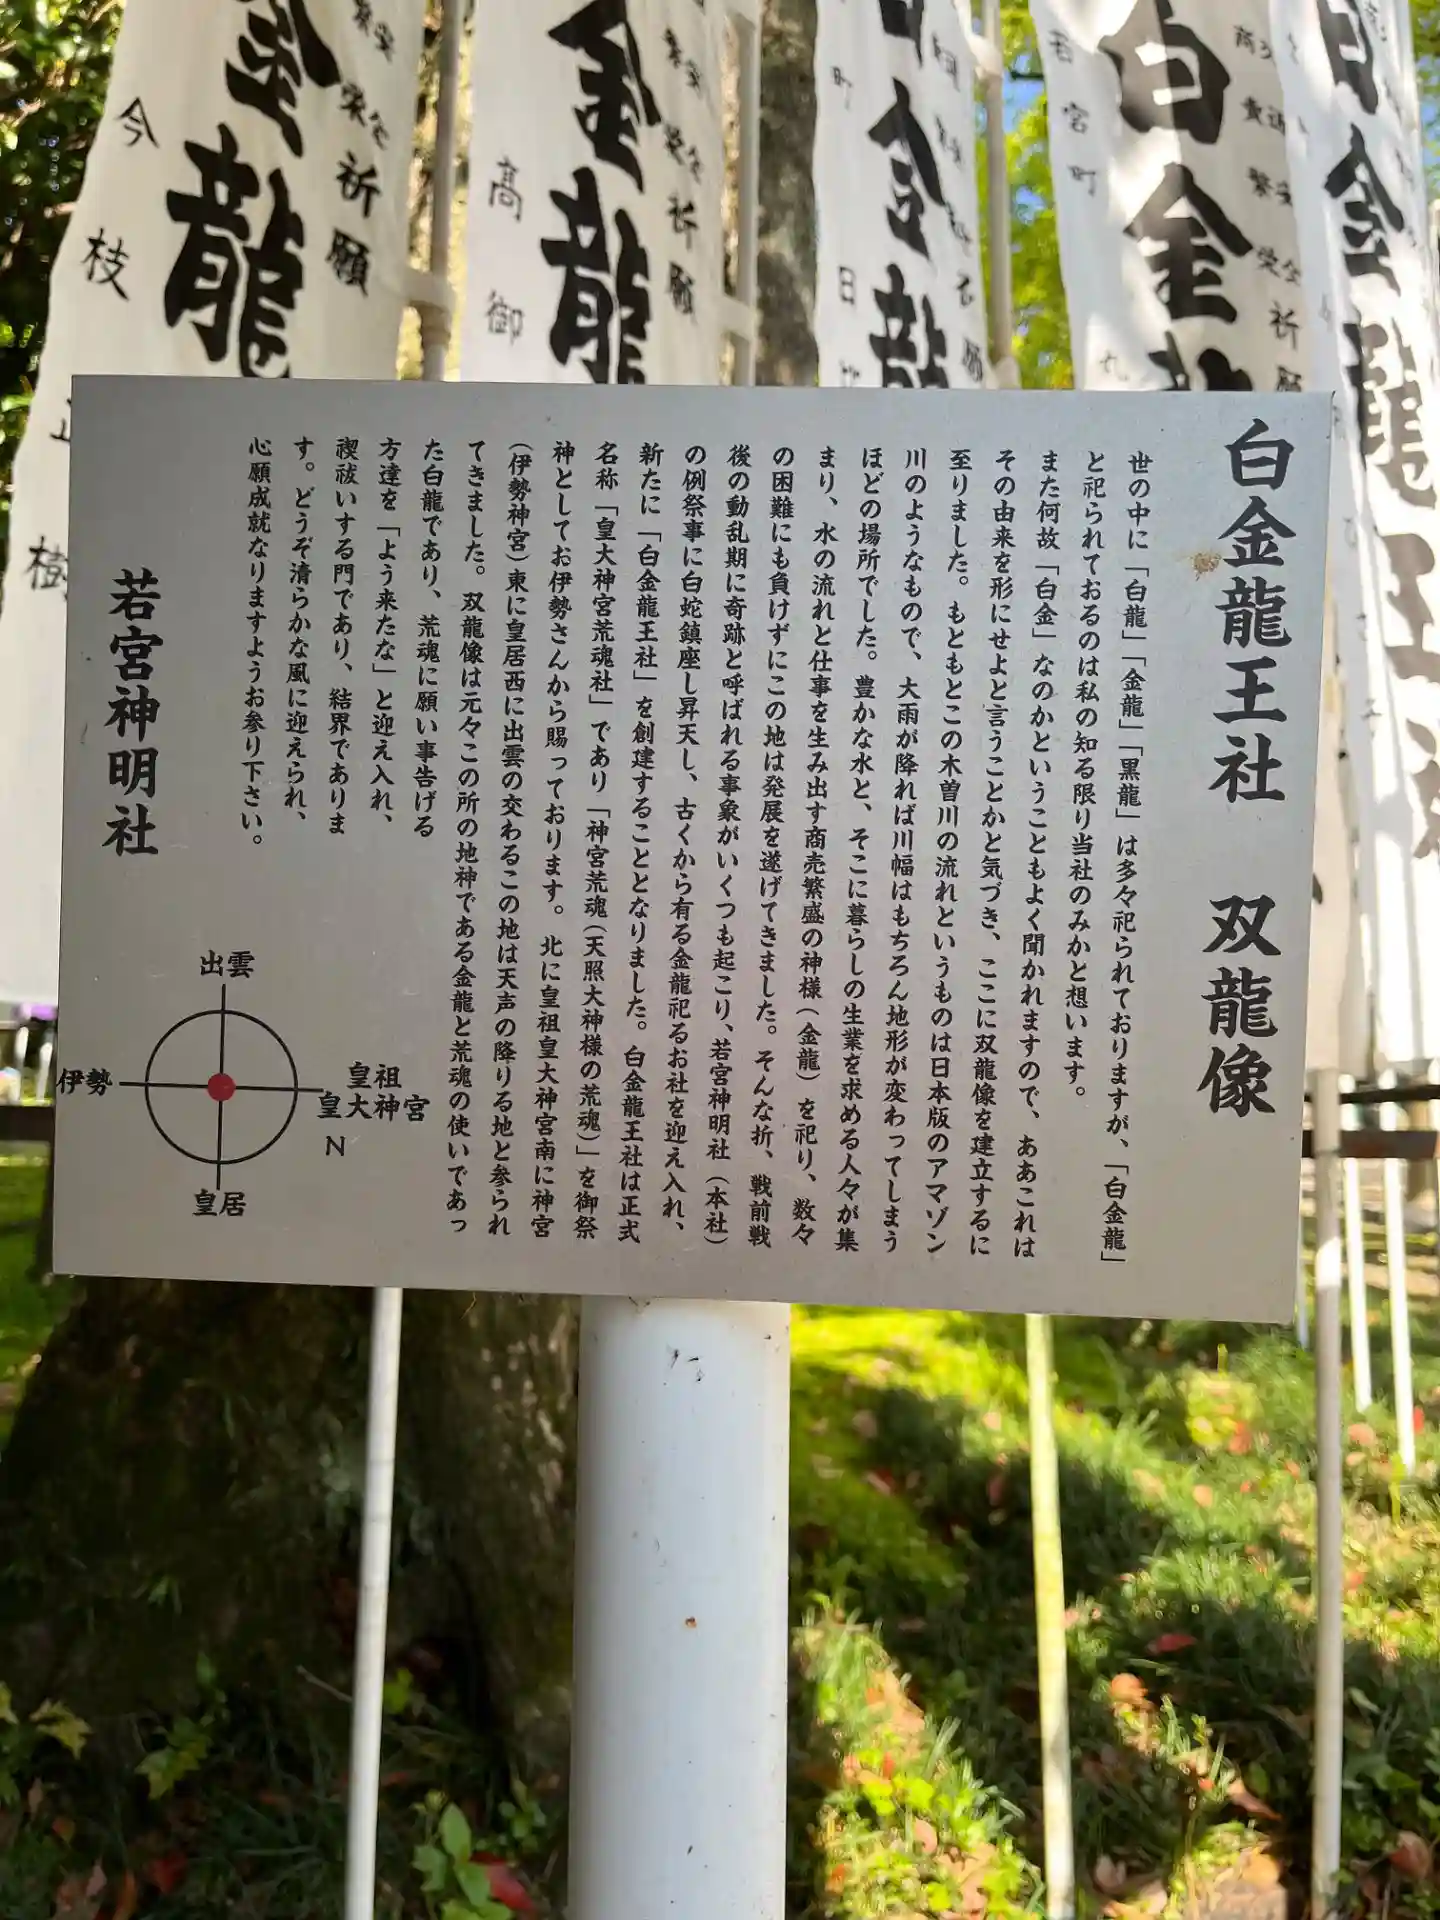 白金龍王社　双龍像
世の中に「白龍」「金龍」「黒龍」は多々祀られておりますが、「白金龍」
と祀られておるのは私の知る限り当社のみかと想います。
また何故「白金」なのかということもよく聞かれますので、ああこれは
その由来を形にせよと言うことかと気づき、ここに双龍像を建立するに
至りました。もともとこの木曽川の流れというものは日本版のアマゾン
川のようなもので、大雨が降れば川幅はもちろん地形が変わってしまう
ほどの場所でした。豊かな水と、そこに暮らしの生業を求める人々が集
まり、水の流れと仕事を生み出す商売繁盛の神様（金龍）を祀り、数々
の困難にも負けずにこの地は発展を遂げてきました。そんな折、戦前戦
後の動乱期に奇跡と呼ばれる事象がいくつも起こり、若宮神明社（本社）
の例祭事に白蛇鎮座し昇天し、古くから有る金龍祀るお社を迎え入れ、
新たに「白金龍王社」を創建することとなりました。白金龍王社は正式
名称「皇大神宮荒魂社」であり「神宮荒魂（天照大神様の荒魂）」を御祭
神としてお伊勢さんから賜っております。北に皇祖皇大神宮南に神宮
（伊勢神宮）東に皇居西に出雲の交わるこの地は天声の降りる地と参られ
てきました。双龍像は元々この所の地神である金龍と荒魂の使いであっ
た白龍であり、荒魂に願い事告げる
方達を「よう来たな」と迎え入れ、
禊祓いする門であり、結界でありま
す。どうぞ清らかな風に迎えられ、
心願成就なりますようお参り下さい。
若宮神明社
出雲
伊勢
皇祖
皇大神宮
N
皇居
金龍
祈願
今枝
樹
金龍
祈願
髙御
金龍
町
日比
白金龍
祈願
若宮町
金龍王